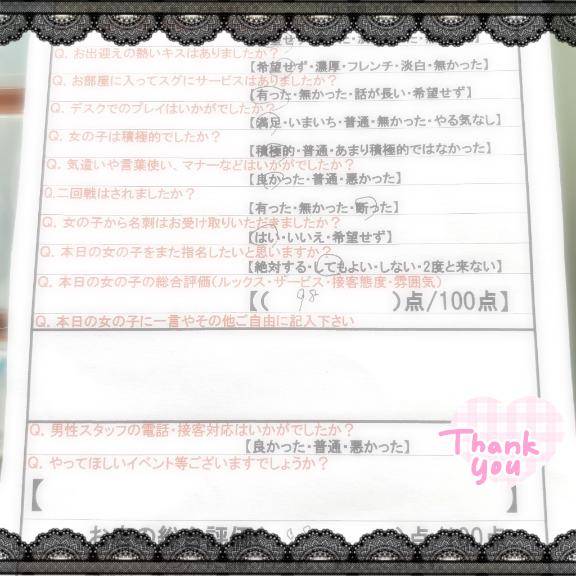 Q. お出迎えの熱いキスはありましたか？
【希望せず・濃厚・フレンチ・淡白・無かった】
Q. お部屋に入ってスグにサービスはありましたか？
【有った・無かった・話が長い・希望せず】
Q. デスクでのプレイはいかがでしたか？
【満足・いまいち・普通・無かった・やる気なし】
Q. 女の子は積極的でしたか？
【積極的・普通・あまり積極的ではなかった】
Q. 気遣いや言葉使い、マナーなどはいかがでしたか？
【良かった・普通・悪かった】
Q.二回戦はされましたか？
【有った・無かった・断った】
Q. 女の子から名刺はお受け取りいただきましたか？
【はい・いいえ・希望せず】
Q. 本日の女の子をまた指名したいと思いますか？
【絶対する・してもよい・しない・2度と来ない】
Q. 本日の女の子の総合評価（ルックス・サービス・接客態度・雰囲気）
【（ 98 ）点/100点】
Q. 本日の女の子に一言やその他ご自由に記入下さい
Q. 男性スタッフの電話・接客対応はいかがでしたか？
【良かった・普通・悪かった】
Thank you
Q. やってほしいイベント等ございますでしょうか？
【 】